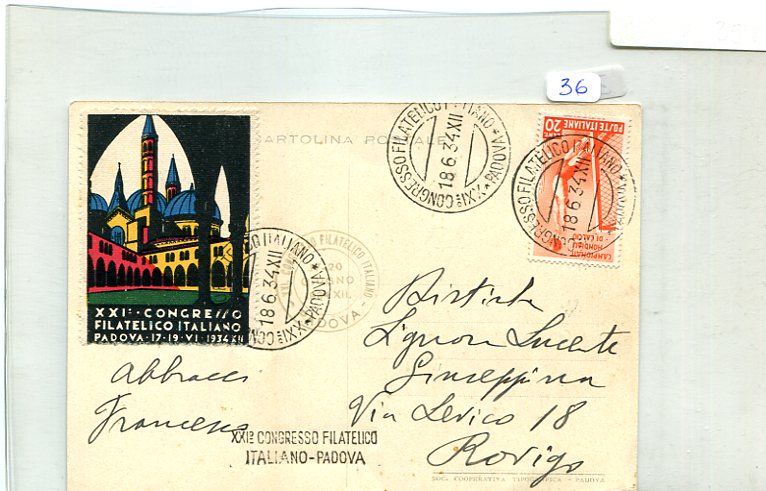 36
CARTOLINA POSTALE
XXIº CONGRESSO FILATELICO ITALIANO * PADOVA *
18 6 34 XII
POSTE ITALIANE
20
CAMPIONATI
MONDIALI
DI CALCIO
CONGRESSO FILATELICO ITALIANO
18 6 34 XII
XXIº CONGRESSO
FILATELICO ITALIANO
PADOVA - 17-19 - VI - 1934 XII
XXIº CONGRESSO ITALIANO * PADOVA *
18 6 34 XII
CONGRESSO FILATELICO ITALIANO
PADOVA
Distinta
Signora Lucente
Giuseppina
Via Levico 18
Rovigo
Abbracci
Francesco
XXIº CONGRESSO FILATELICO
ITALIANO-PADOVA
SOC. COOPERATIVA TIPOGRAFICA - PADOVA